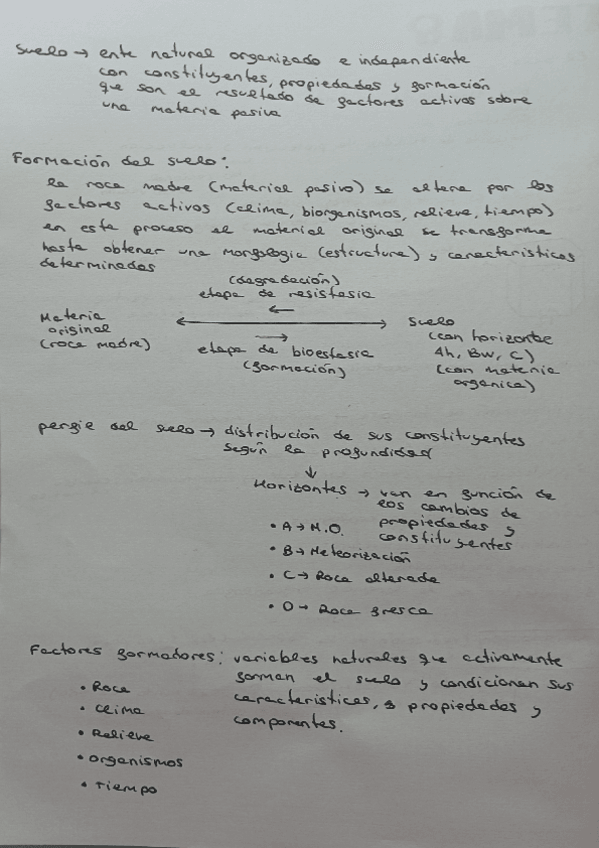 Suelo → ente natural organizado e independiente
con constituyentes, propiedades y formación
que son el resultado de factores activos sobre
una materia pasiva
Formación del suelo:
la roca madre (material pasivo) se altera por los
factores activos (clima, biorganismos, relieve, tiempo)
en este proceso el material original se transforma
hasta obtener una morfologia (estructura) y caracteristicas
determinadas
(degradación)
etapa de resistasia
←
Materia
original
(roca madre)
→
etapa de biostasia
(formación)
Suelo
(con horizonte
Ah, Bw, C)
(con materia
organica)
perfil del suelo → distribución de sus constituyentes
según la profundidad
↓
Horizontes → van en función de
los cambios de
propiedades y
constituyentes
• A → M.O.
• B → Meteorización
• C → Roca alterada
• D → Roca fresca
Factores formadores: variables naturales que activamente
forman el suelo y condicionan sus
caracteristicas, propiedades y
componentes.
• Roca
• Clima
• Relieve
• organismos
• Tiempo